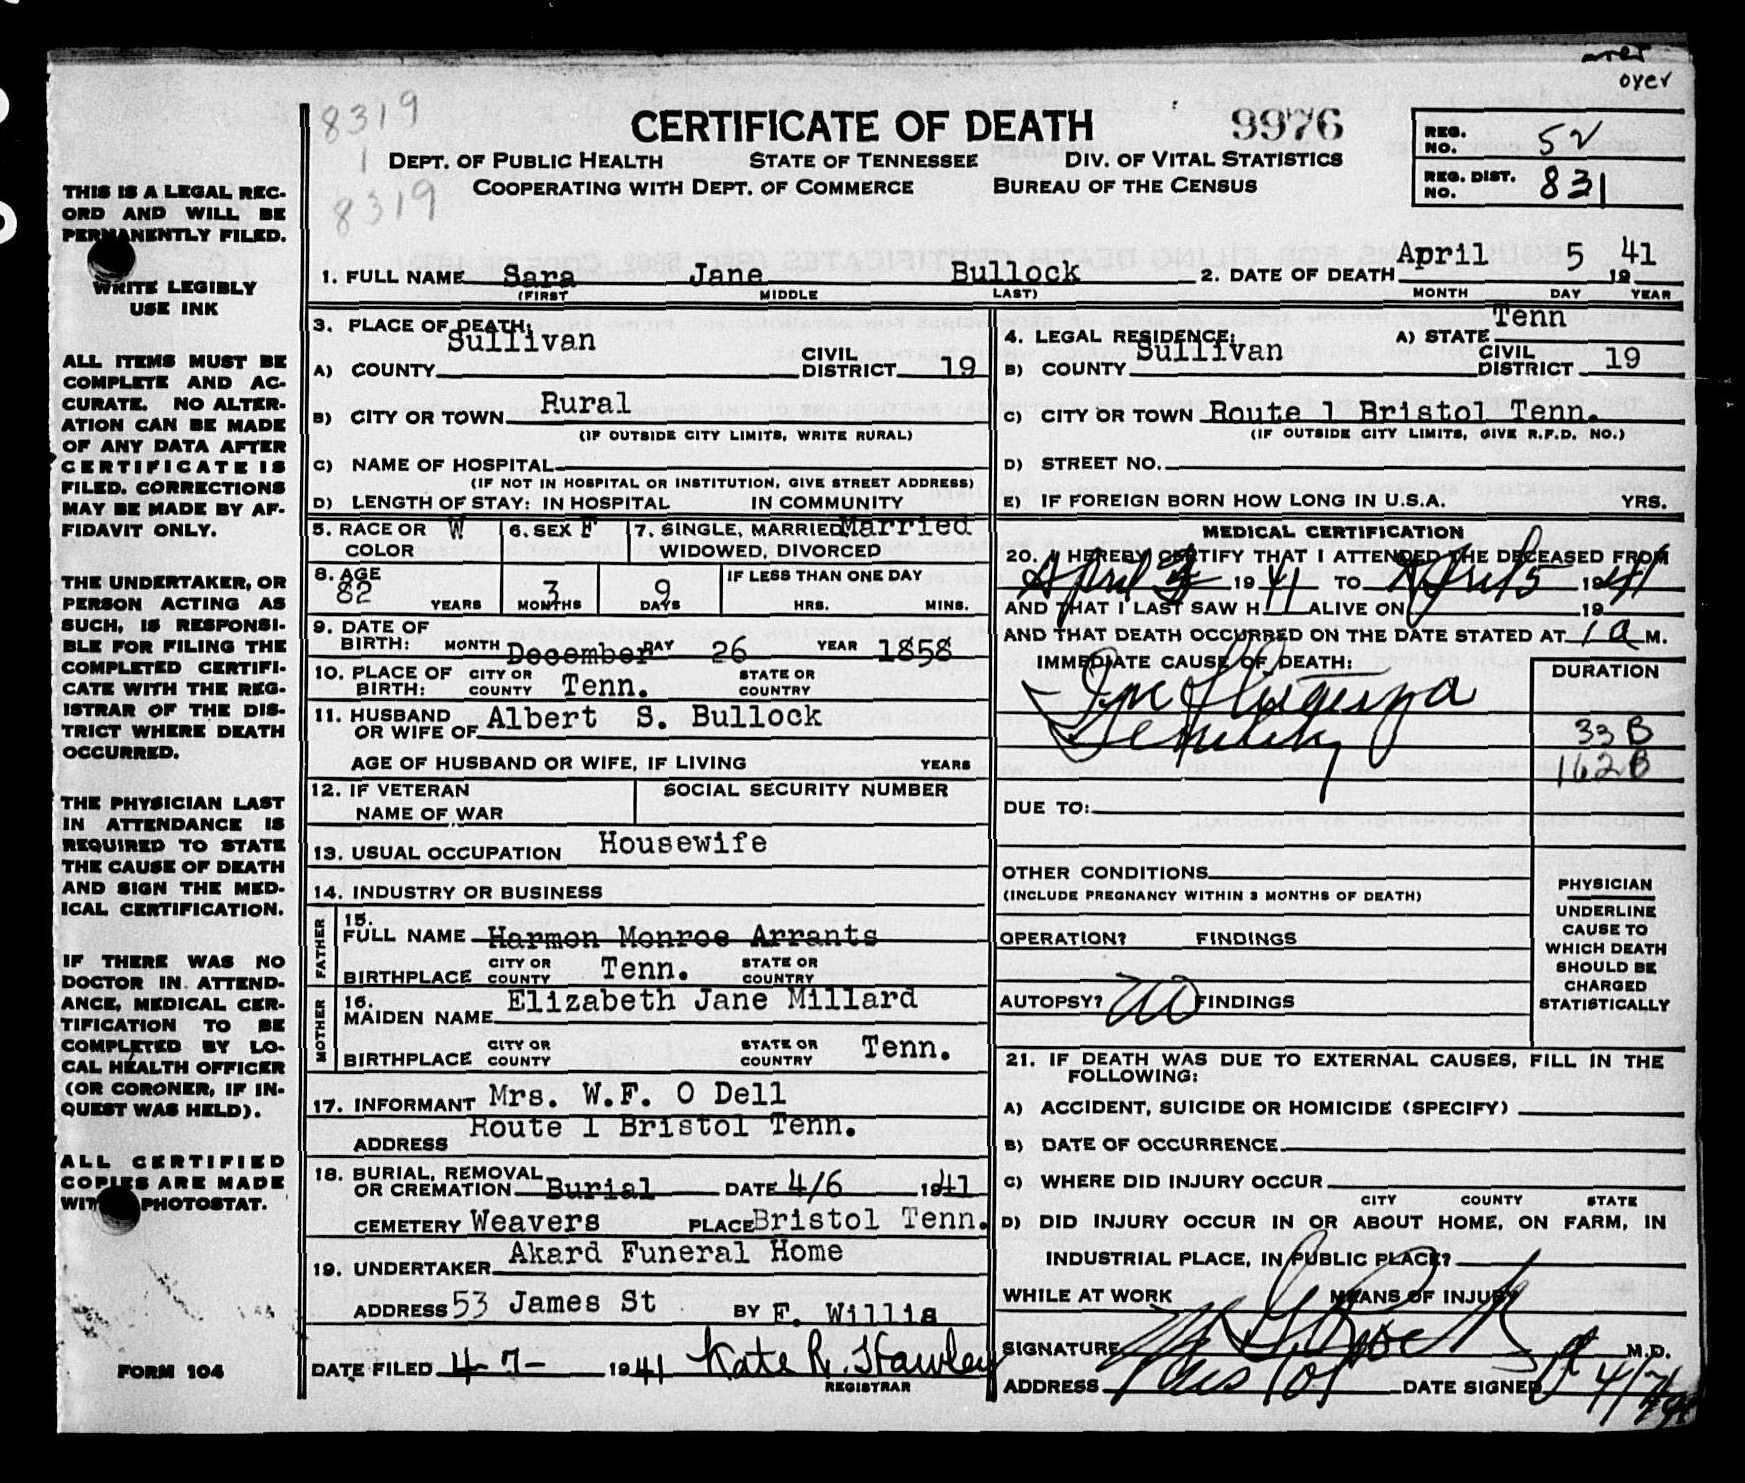 over
over
8319
1
8319
CERTIFICATE OF DEATH
9976
REG. NO. 52
REG. DIST. NO. 831
DEPT. OF PUBLIC HEALTH STATE OF TENNESSEE DIV. OF VITAL STATISTICS
COOPERATING WITH DEPT. OF COMMERCE BUREAU OF THE CENSUS
THIS IS A LEGAL REC-
ORD AND WILL BE
PERMANENTLY FILED.
WRITE LEGIBLY
USE INK
ALL ITEMS MUST BE
COMPLETE AND AC-
CURATE. NO ALTER-
ATION CAN BE MADE
OF ANY DATA AFTER
CERTIFICATE IS
FILED. CORRECTIONS
MAY BE MADE BY AF-
FIDAVIT ONLY.
THE UNDERTAKER, OR
PERSON ACTING AS
SUCH, IS RESPONSI-
BLE FOR FILING THE
COMPLETED CERTIFI-
CATE WITH THE REG-
ISTRAR OF THE DIS-
TRICT WHERE DEATH
OCCURRED.
THE PHYSICIAN LAST
IN ATTENDANCE IS
REQUIRED TO STATE
THE CAUSE OF DEATH
AND SIGN THE MED-
ICAL CERTIFICATION.
IF THERE WAS NO
DOCTOR IN ATTEND-
ANCE, MEDICAL CER-
TIFICATION TO BE
COMPLETED BY LO-
CAL HEALTH OFFICER
(OR CORONER, IF IN-
QUEST WAS HELD).
ALL CERTIFIED
COPIES ARE MADE
WITH PHOTOSTAT.
FORM 104
1. FULL NAME Sara Jane Bullock 2. DATE OF DEATH April 5 1941
(FIRST MIDDLE LAST) MONTH DAY YEAR
3. PLACE OF DEATH:
A) COUNTY Sullivan CIVIL DISTRICT 19
B) CITY OR TOWN Rural
(IF OUTSIDE CITY LIMITS, WRITE RURAL)
C) NAME OF HOSPITAL
(IF NOT IN HOSPITAL OR INSTITUTION, GIVE STREET ADDRESS)
D) LENGTH OF STAY: IN HOSPITAL IN COMMUNITY
4. LEGAL RESIDENCE: A) STATE Tenn
B) COUNTY Sullivan CIVIL DISTRICT 19
C) CITY OR TOWN Route 1 Bristol Tenn.
(IF OUTSIDE CITY LIMITS, GIVE R.F.D. NO.)
D) STREET NO.
E) IF FOREIGN BORN HOW LONG IN U.S.A. YRS.
5. RACE OR COLOR W 6. SEX F 7. SINGLE, MARRIED WIDOWED, DIVORCED Married
8. AGE 82 YEARS 3 MONTHS 9 DAYS IF LESS THAN ONE DAY HRS. MINS.
9. DATE OF BIRTH: MONTH December DAY 26 YEAR 1858
10. PLACE OF BIRTH: CITY OR COUNTY Tenn. STATE OR COUNTRY
11. HUSBAND OR WIFE OF Albert S. Bullock
AGE OF HUSBAND OR WIFE, IF LIVING YEARS
12. IF VETERAN NAME OF WAR SOCIAL SECURITY NUMBER
13. USUAL OCCUPATION Housewife
14. INDUSTRY OR BUSINESS
FATHER
15. FULL NAME Harmon Monroe Arrants
BIRTHPLACE CITY OR COUNTY Tenn. STATE OR COUNTRY
MOTHER
16. MAIDEN NAME Elizabeth Jane Millard
BIRTHPLACE CITY OR COUNTY STATE OR COUNTRY Tenn.
17. INFORMANT Mrs. W.F. O Dell
ADDRESS Route 1 Bristol Tenn.
18. BURIAL, REMOVAL OR CREMATION Burial DATE 4/6 1941
CEMETERY Weavers PLACE Bristol Tenn.
19. UNDERTAKER Akard Funeral Home
ADDRESS 53 James St BY F. Willis
DATE FILED 4-7- 1941 Kate R. Hawley
REGISTRAR
MEDICAL CERTIFICATION
20. I HEREBY CERTIFY THAT I ATTENDED THE DECEASED FROM
April 1941 TO April 5 1941
AND THAT I LAST SAW H ALIVE ON 19
AND THAT DEATH OCCURRED ON THE DATE STATED AT 1 a M.
IMMEDIATE CAUSE OF DEATH: DURATION
Senility
33 B
162B
DUE TO:
OTHER CONDITIONS
(INCLUDE PREGNANCY WITHIN 3 MONTHS OF DEATH)
OPERATION? FINDINGS
AUTOPSY? no FINDINGS
PHYSICIAN
UNDERLINE
CAUSE TO
WHICH DEATH
SHOULD BE
CHARGED
STATISTICALLY
21. IF DEATH WAS DUE TO EXTERNAL CAUSES, FILL IN THE
FOLLOWING:
A) ACCIDENT, SUICIDE OR HOMICIDE (SPECIFY)
B) DATE OF OCCURRENCE
C) WHERE DID INJURY OCCUR
CITY COUNTY STATE
D) DID INJURY OCCUR IN OR ABOUT HOME, ON FARM, IN
INDUSTRIAL PLACE, IN PUBLIC PLACE?
WHILE AT WORK MEANS OF INJURY
SIGNATURE M.D.
ADDRESS DATE SIGNED 4/7/41